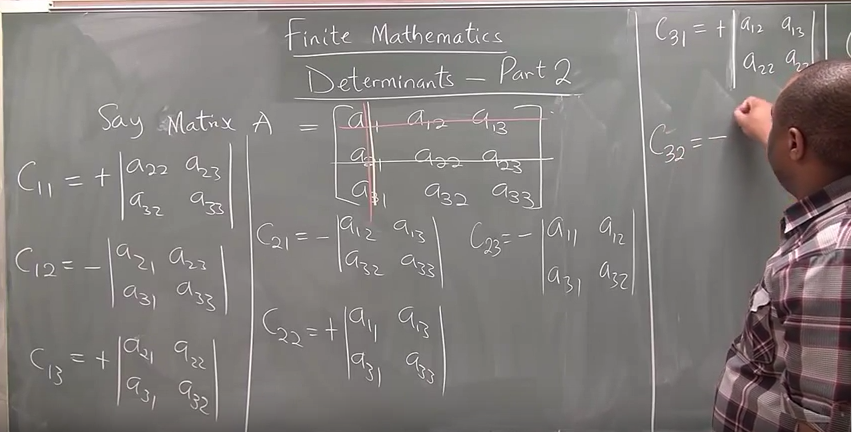 Finite Mathematics
Determinants – Part 2
Say Matrix A = [a11 a12 a13
a21 a22 a23
a31 a32 a33]
C11 = + |a22 a23
a32 a33|
C12 = - |a21 a23
a31 a33|
C13 = + |a21 a22
a31 a32|
C21 = - |a12 a13
a32 a33|
C22 = + |a11 a13
a31 a33|
C23 = - |a11 a12
a31 a32|
C31 = + |a12 a13
a22 a23|
C32 = -